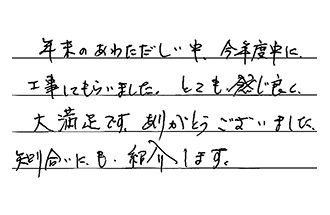 年末のあわただしい中、今年度中に
工事してもらいました。とても感じ良く、
大満足です。ありがとうございました。
知り合いにも、紹介します。